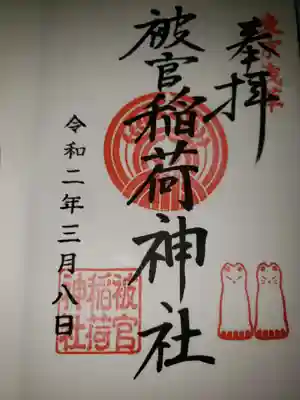 奉拝
被官稲荷神社
令和二年三月八日
被官
稲荷
神社